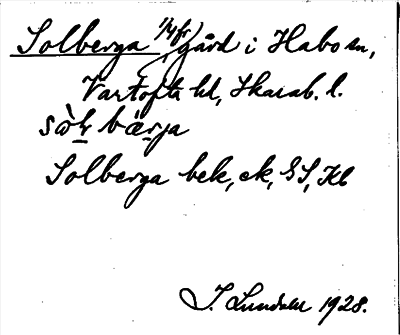 Solberga 1/4 fr, gård i Habo sn,
Vartofta hd, Skarab. l.
sòł bärja
Solberga bek, ek, GS, Kb
I. Lundahl 1928.